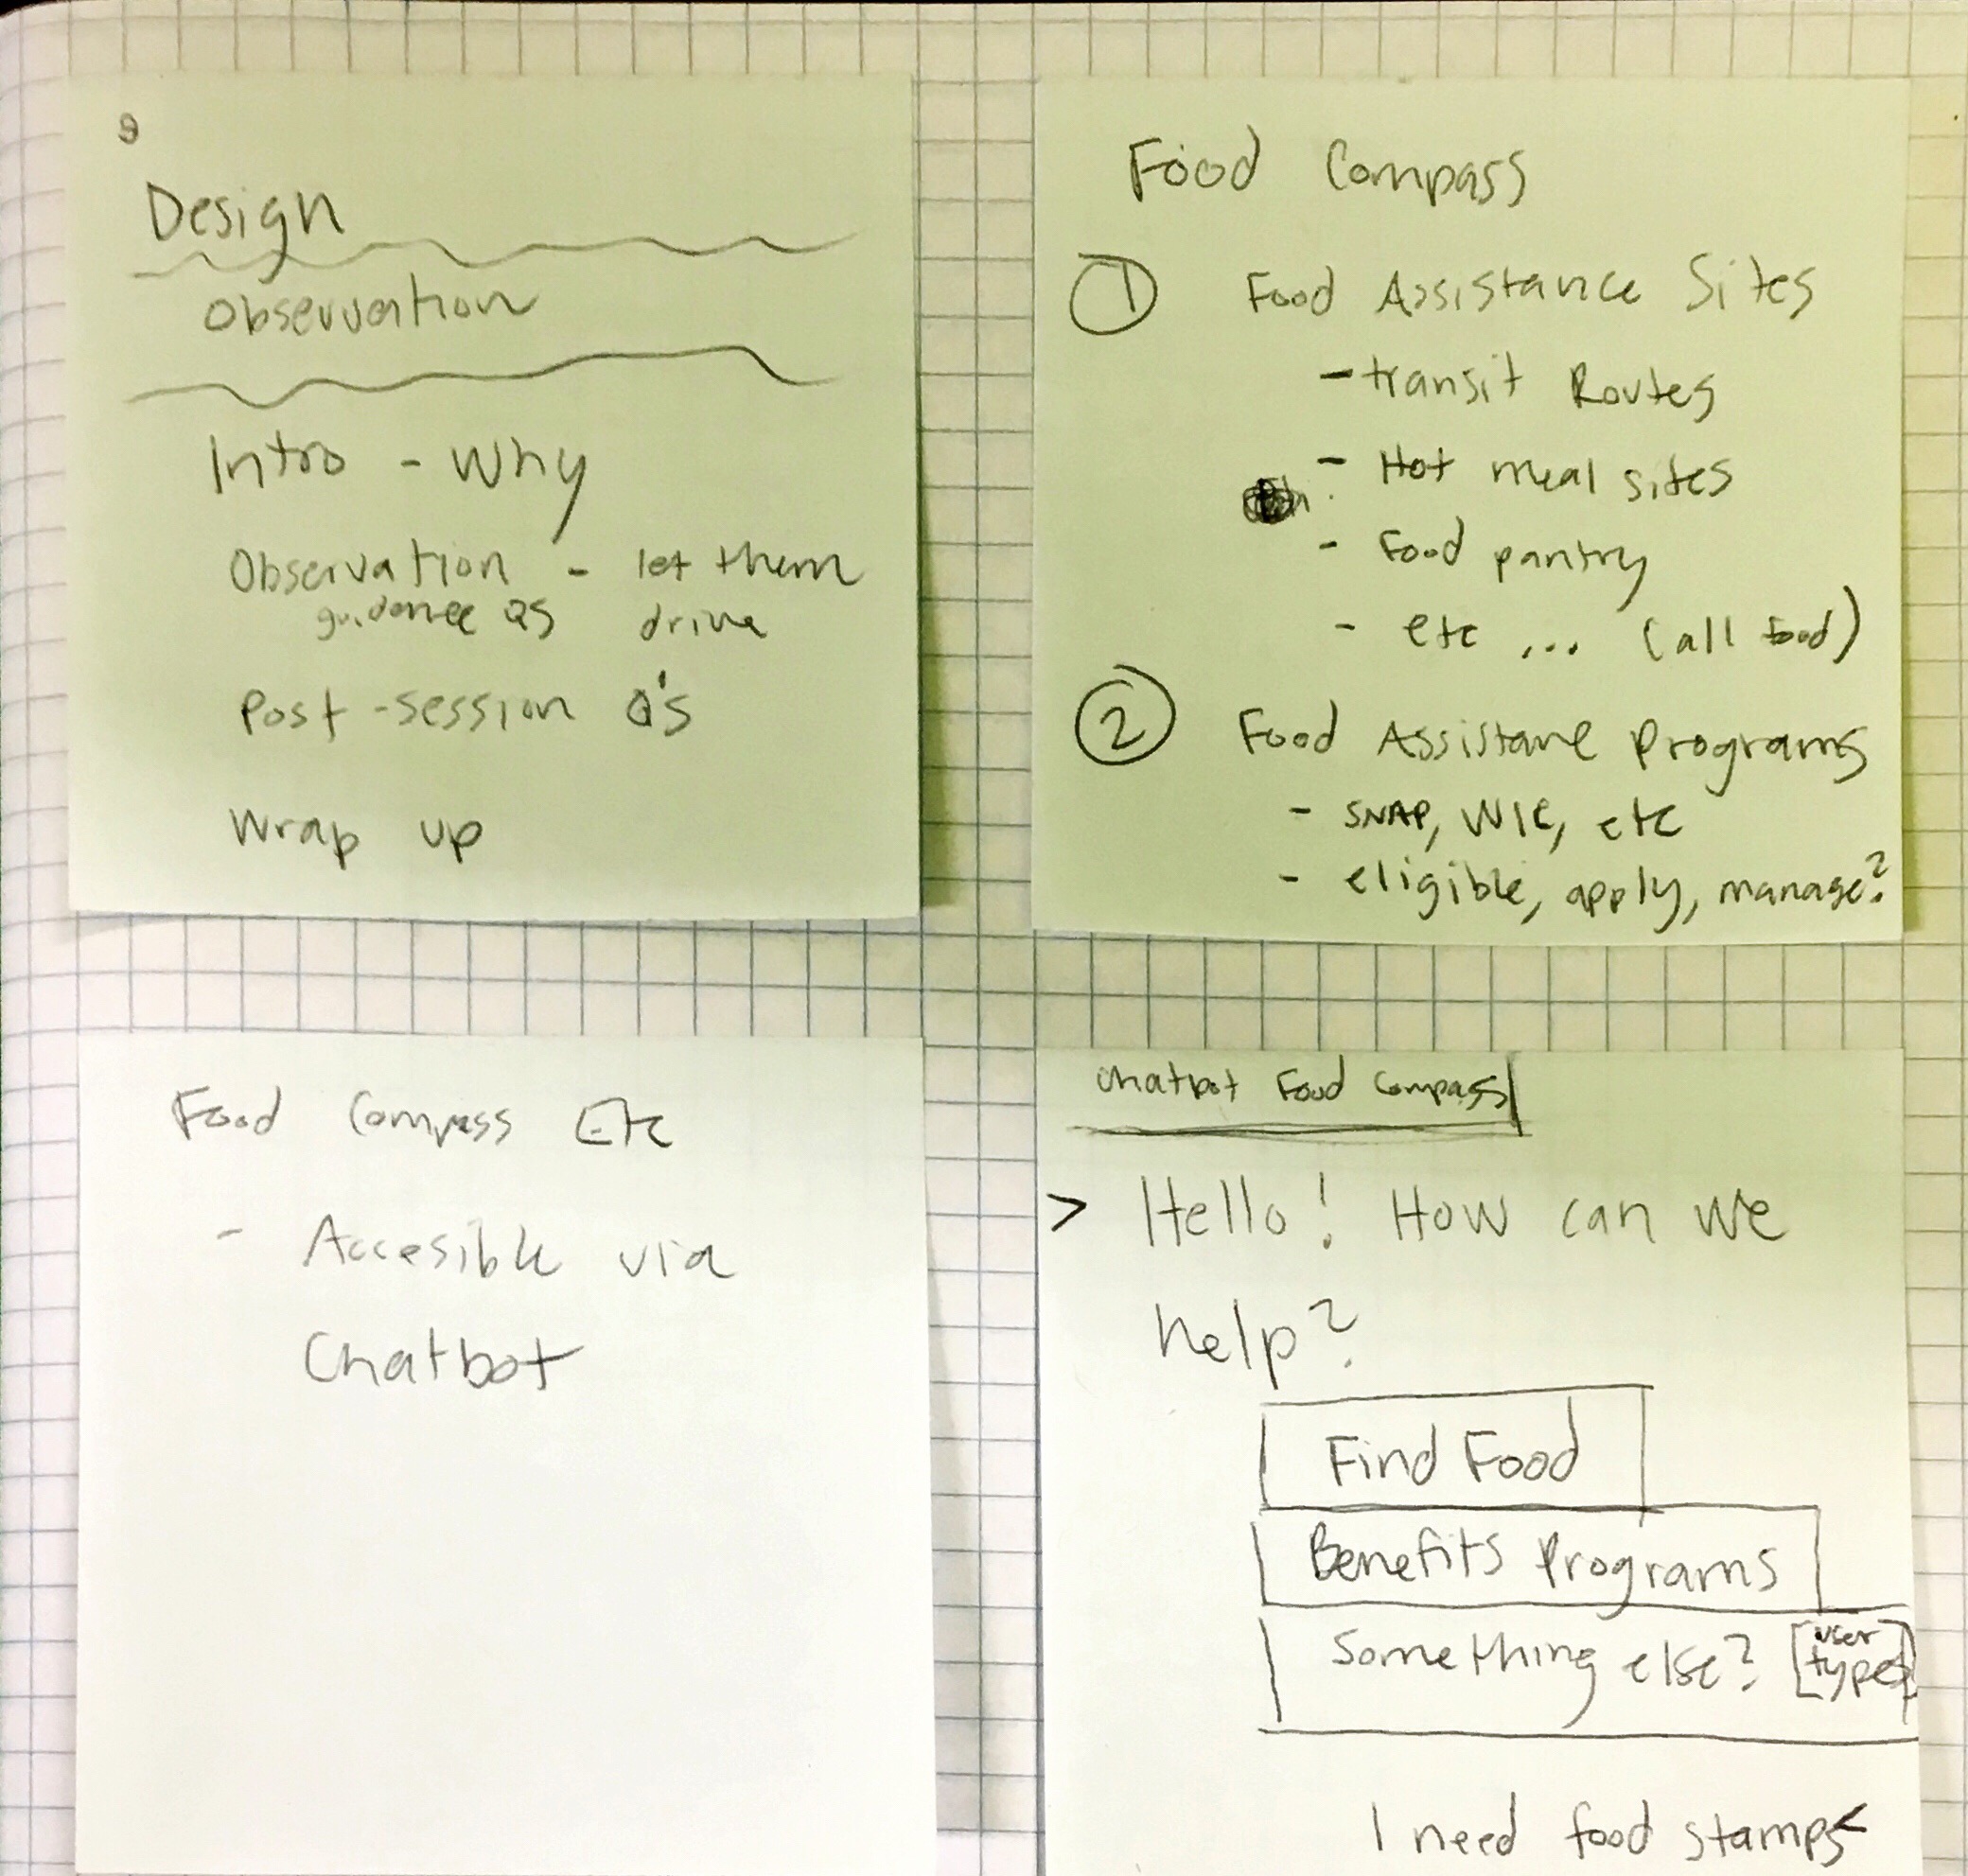 9
Design
Observation
Intro - Why
Observation - let them
guidance Qs drive
Post-session Q's
Wrap up
Food Compass
① Food Assistance Sites
- transit Routes
- Hot meal sites
- Food pantry
- etc ... (all food)
② Food Assistane Programs
- SNAP, WIC, etc
- eligible, apply, manage?
Food Compass Etc
- Accesible via
Chatbot
Chatbot Food Compass
> Hello! How can we
help?
Find Food
Benefits Programs
Something else? [user
types]
I need food stamps <